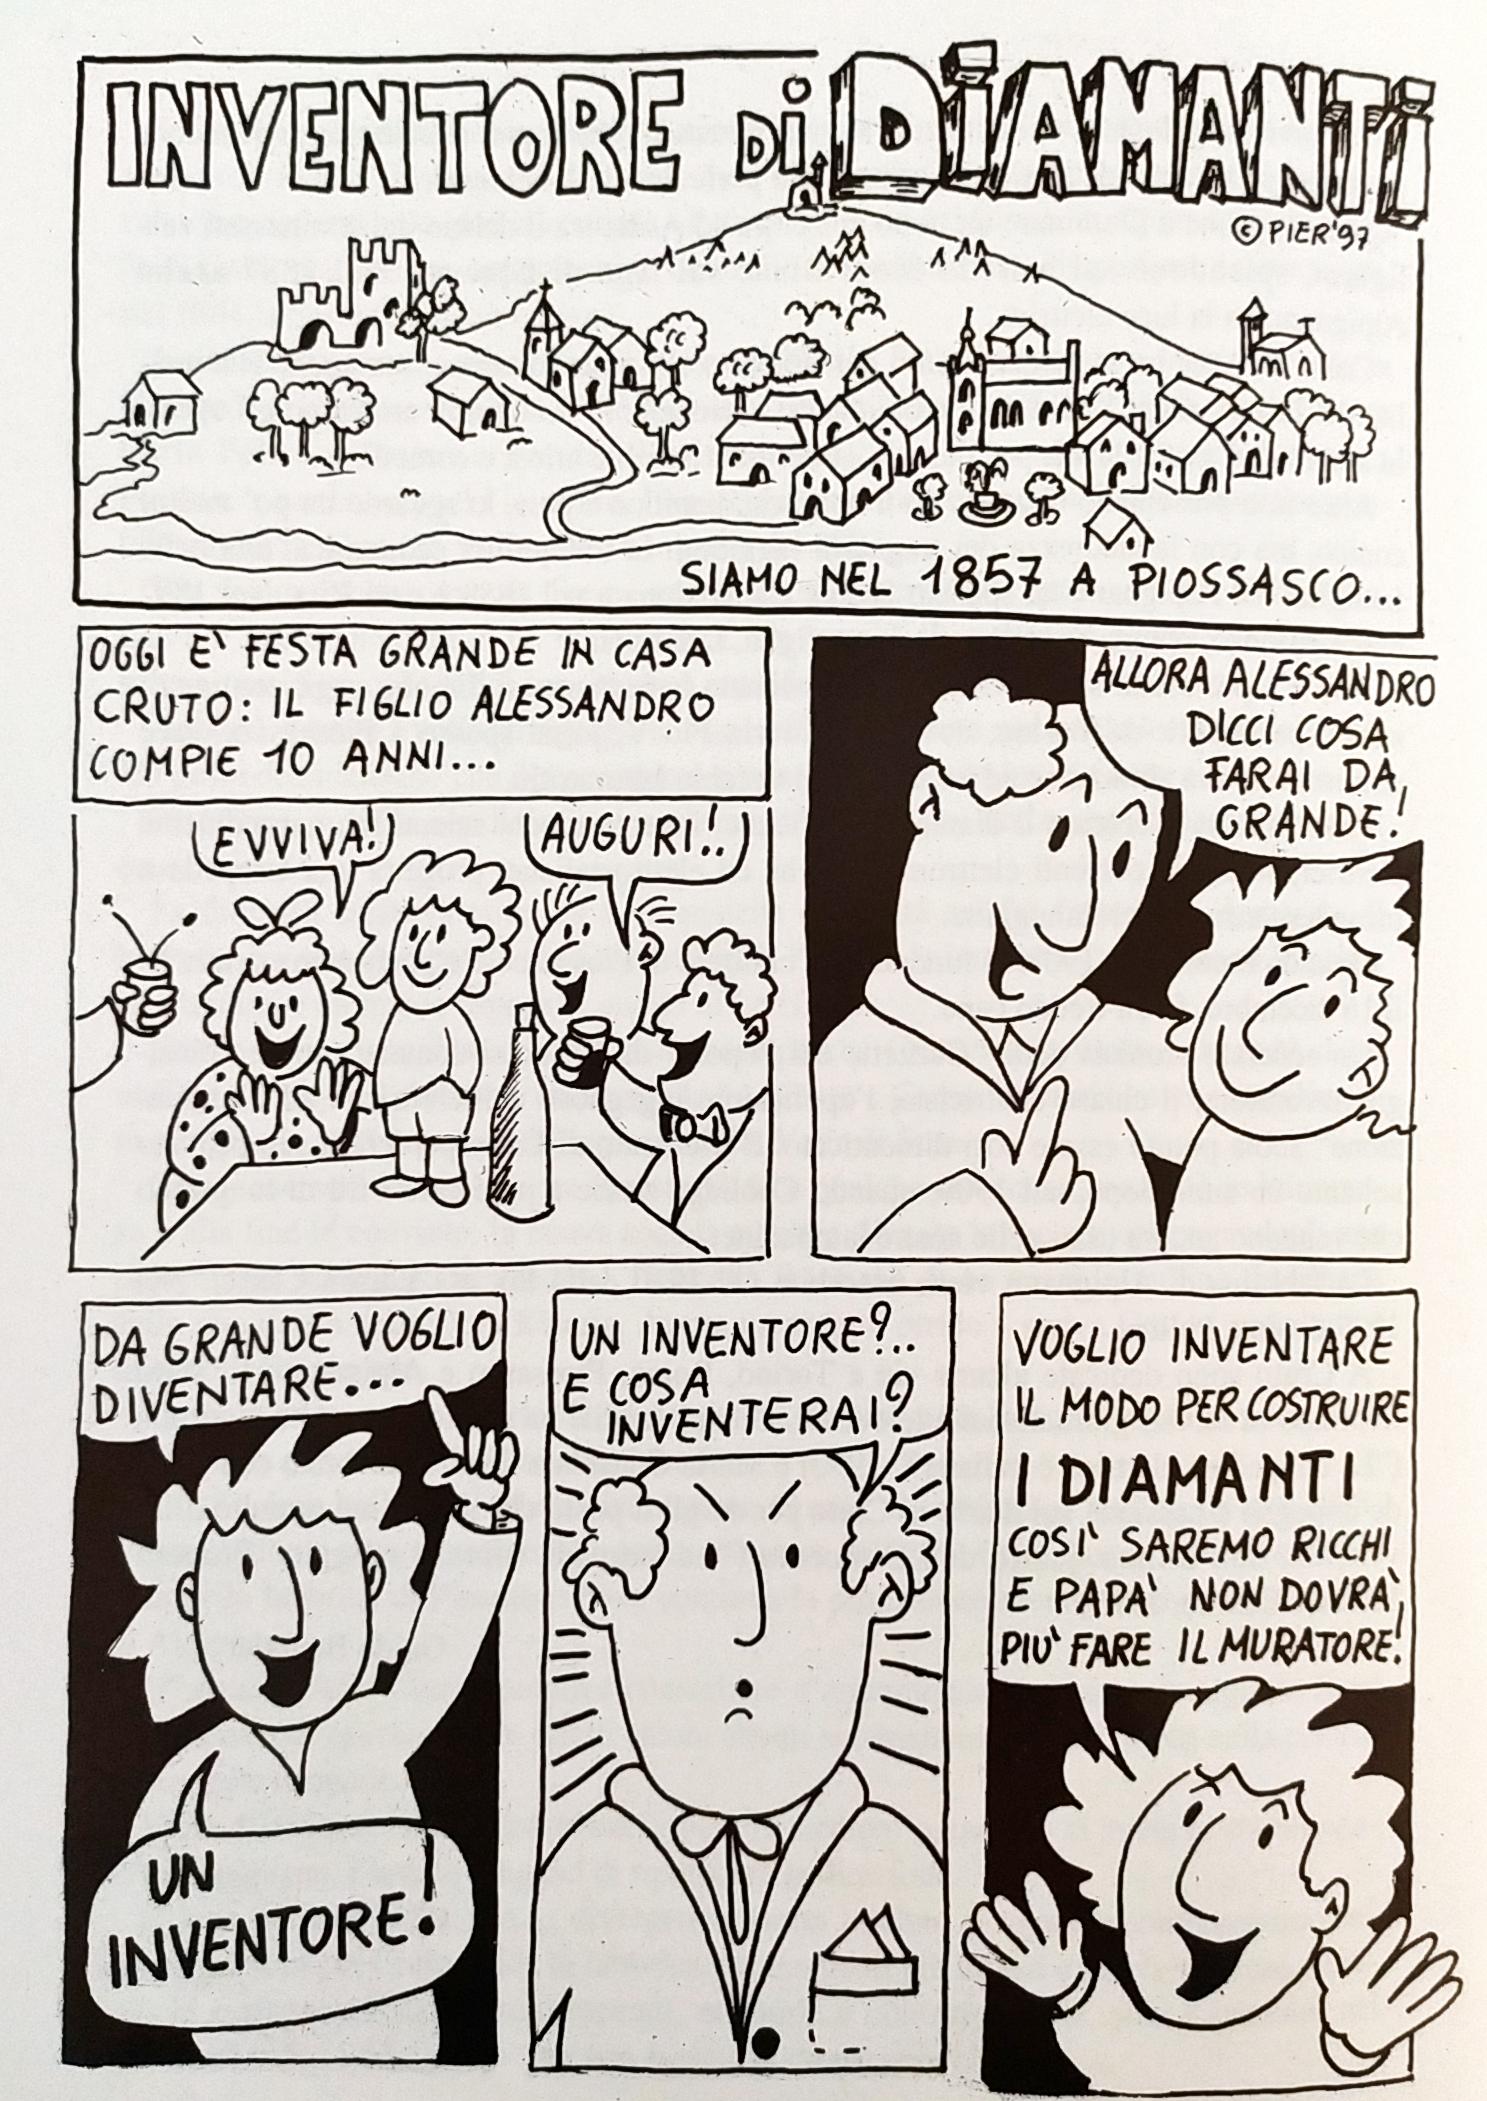 INVENTORE Di DiAMANTi
© PIER '97
SIAMO NEL 1857 A PIOSSASCO...
OGGI E' FESTA GRANDE IN CASA
CRUTO: IL FIGLIO ALESSANDRO
COMPIE 10 ANNI...
EVVIVA!
AUGURI!..
ALLORA ALESSANDRO
DICCI COSA
FARAI DA
GRANDE!
DA GRANDE VOGLIO
DIVENTARE...
UN
INVENTORE!
UN INVENTORE?..
E COSA
INVENTERAI?
VOGLIO INVENTARE
IL MODO PER COSTRUIRE
I DIAMANTI
COSI' SAREMO RICCHI
E PAPA' NON DOVRA'
PIU' FARE IL MURATORE!